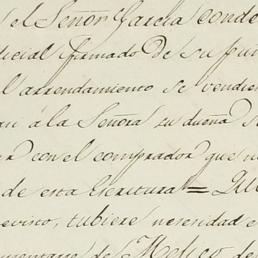 el Señor Garcia conde
icial firmado de su pu
l arrendamiento se vendie
á la Señora su dueña s
con el comprador que n
de esta Escritura = Que
evisto, tubiere necesidad
de Mexico de